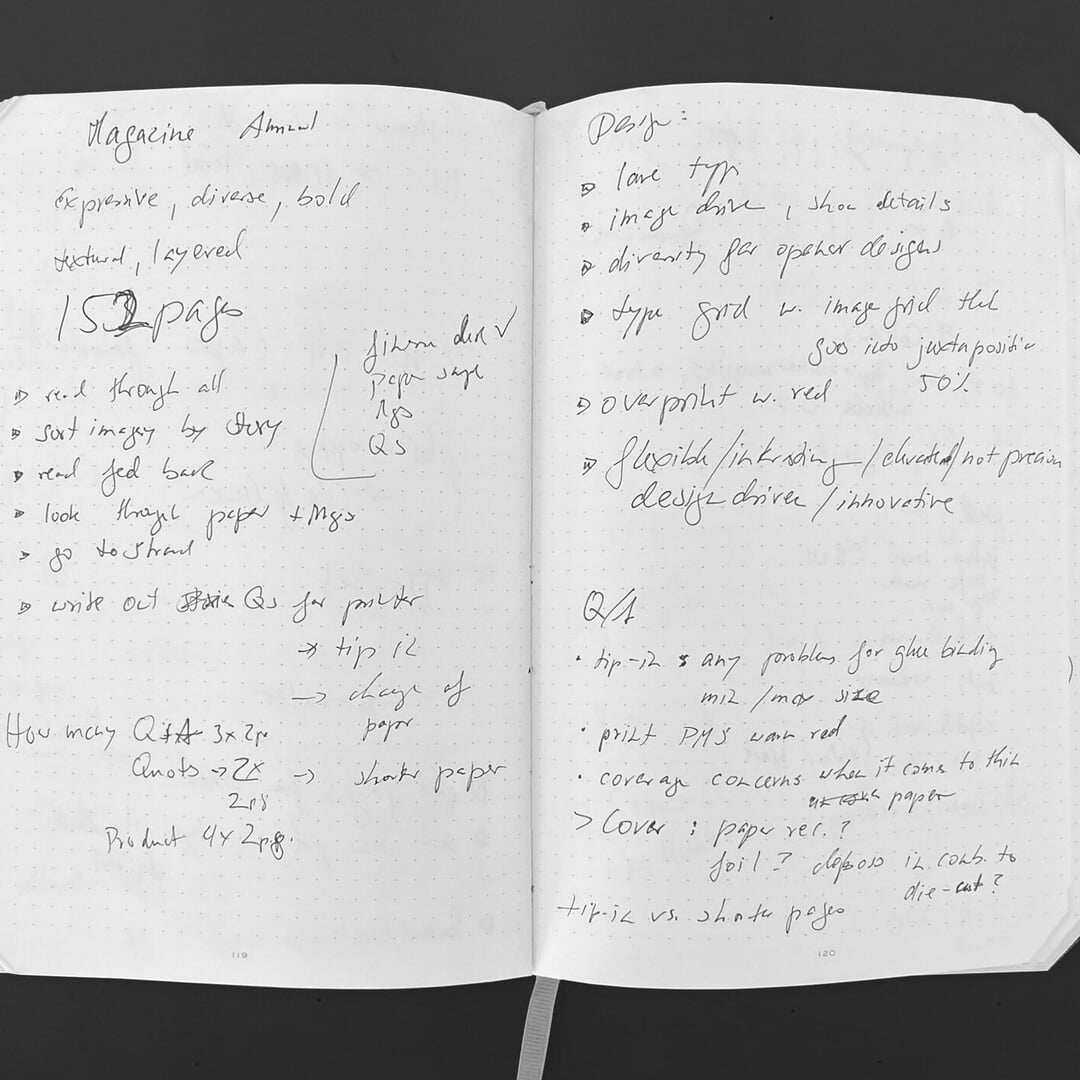 Magazine Annual
expressive, diverse, bold
textural, layered
152 pages
paper
Mgs
QS
read through all
sort imagery by story
read fed back
look through paper + Mgs
go to Strand
write out Qs for printer
→ tip in
→ change of
paper
How many Q+A 3x2pg
Quots → 2x
2pg
→ shorter paper
Product 4x2pgs.
119
Design:
type
image drive, show details
diversity for opener designs
type grid w. image grid that
goes into juxtaposition
50%
overprint w. red
flexible/intruding/elevated/not precious
design driven/innovative
Q/A
· tip-in : any problems for glue binding
min/max size
· print PMS warm red
· coverage concerns when it comes to thin
paper
> Cover : paper rec.?
foil? deboss in comb. to
die-cut?
tip-in vs. shorter pages
120